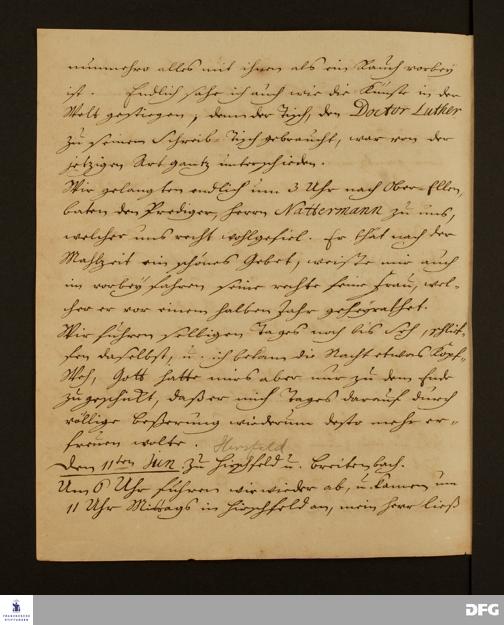 nunmehro alles mit ihnen als ein Rauch vorbey
ist. Endlich sehe ich auch wie die Künste in der
Welt gestiegen, denn der Tisch, den Doctor Luther
zu seinem Schreib-Tisch gebraucht, war von der
jetzigen Art gantz unterschieden.
Wir gelangten endlich um 3 Uhr nach Ober-Ellen,
baten den Prediger, Herrn Nattermann zu uns,
welcher uns recht wohlgefiel. Er that nach der
Mahlzeit ein schönes Gebet, weiste mir auch
im vorbey fahren seine rechte feine Frau, wel-
che er vor einem halben Jahr geheyrathet.
Wir fuhren selbigen Tages noch bis schlief-
fen daselbst, u. ich bekam die Nacht etwas Kopf-
Weh, Gott hatte mirs aber nur zu dem Ende
zugeschickt, daß er mich Tages darauf durch
völlige Beßerung wiederum desto mehr er-
freuen wolte. Hersfeld
Den 11ten Jun. zu Hirschfeld u. Breitenbach.
Um 6 Uhr fuhren wir wieder ab, u. kamen um
11 Uhr Mittags in Hirschfeld an, mein Herr ließ
FRANCKESCHE
STIFTUNGEN
DFG